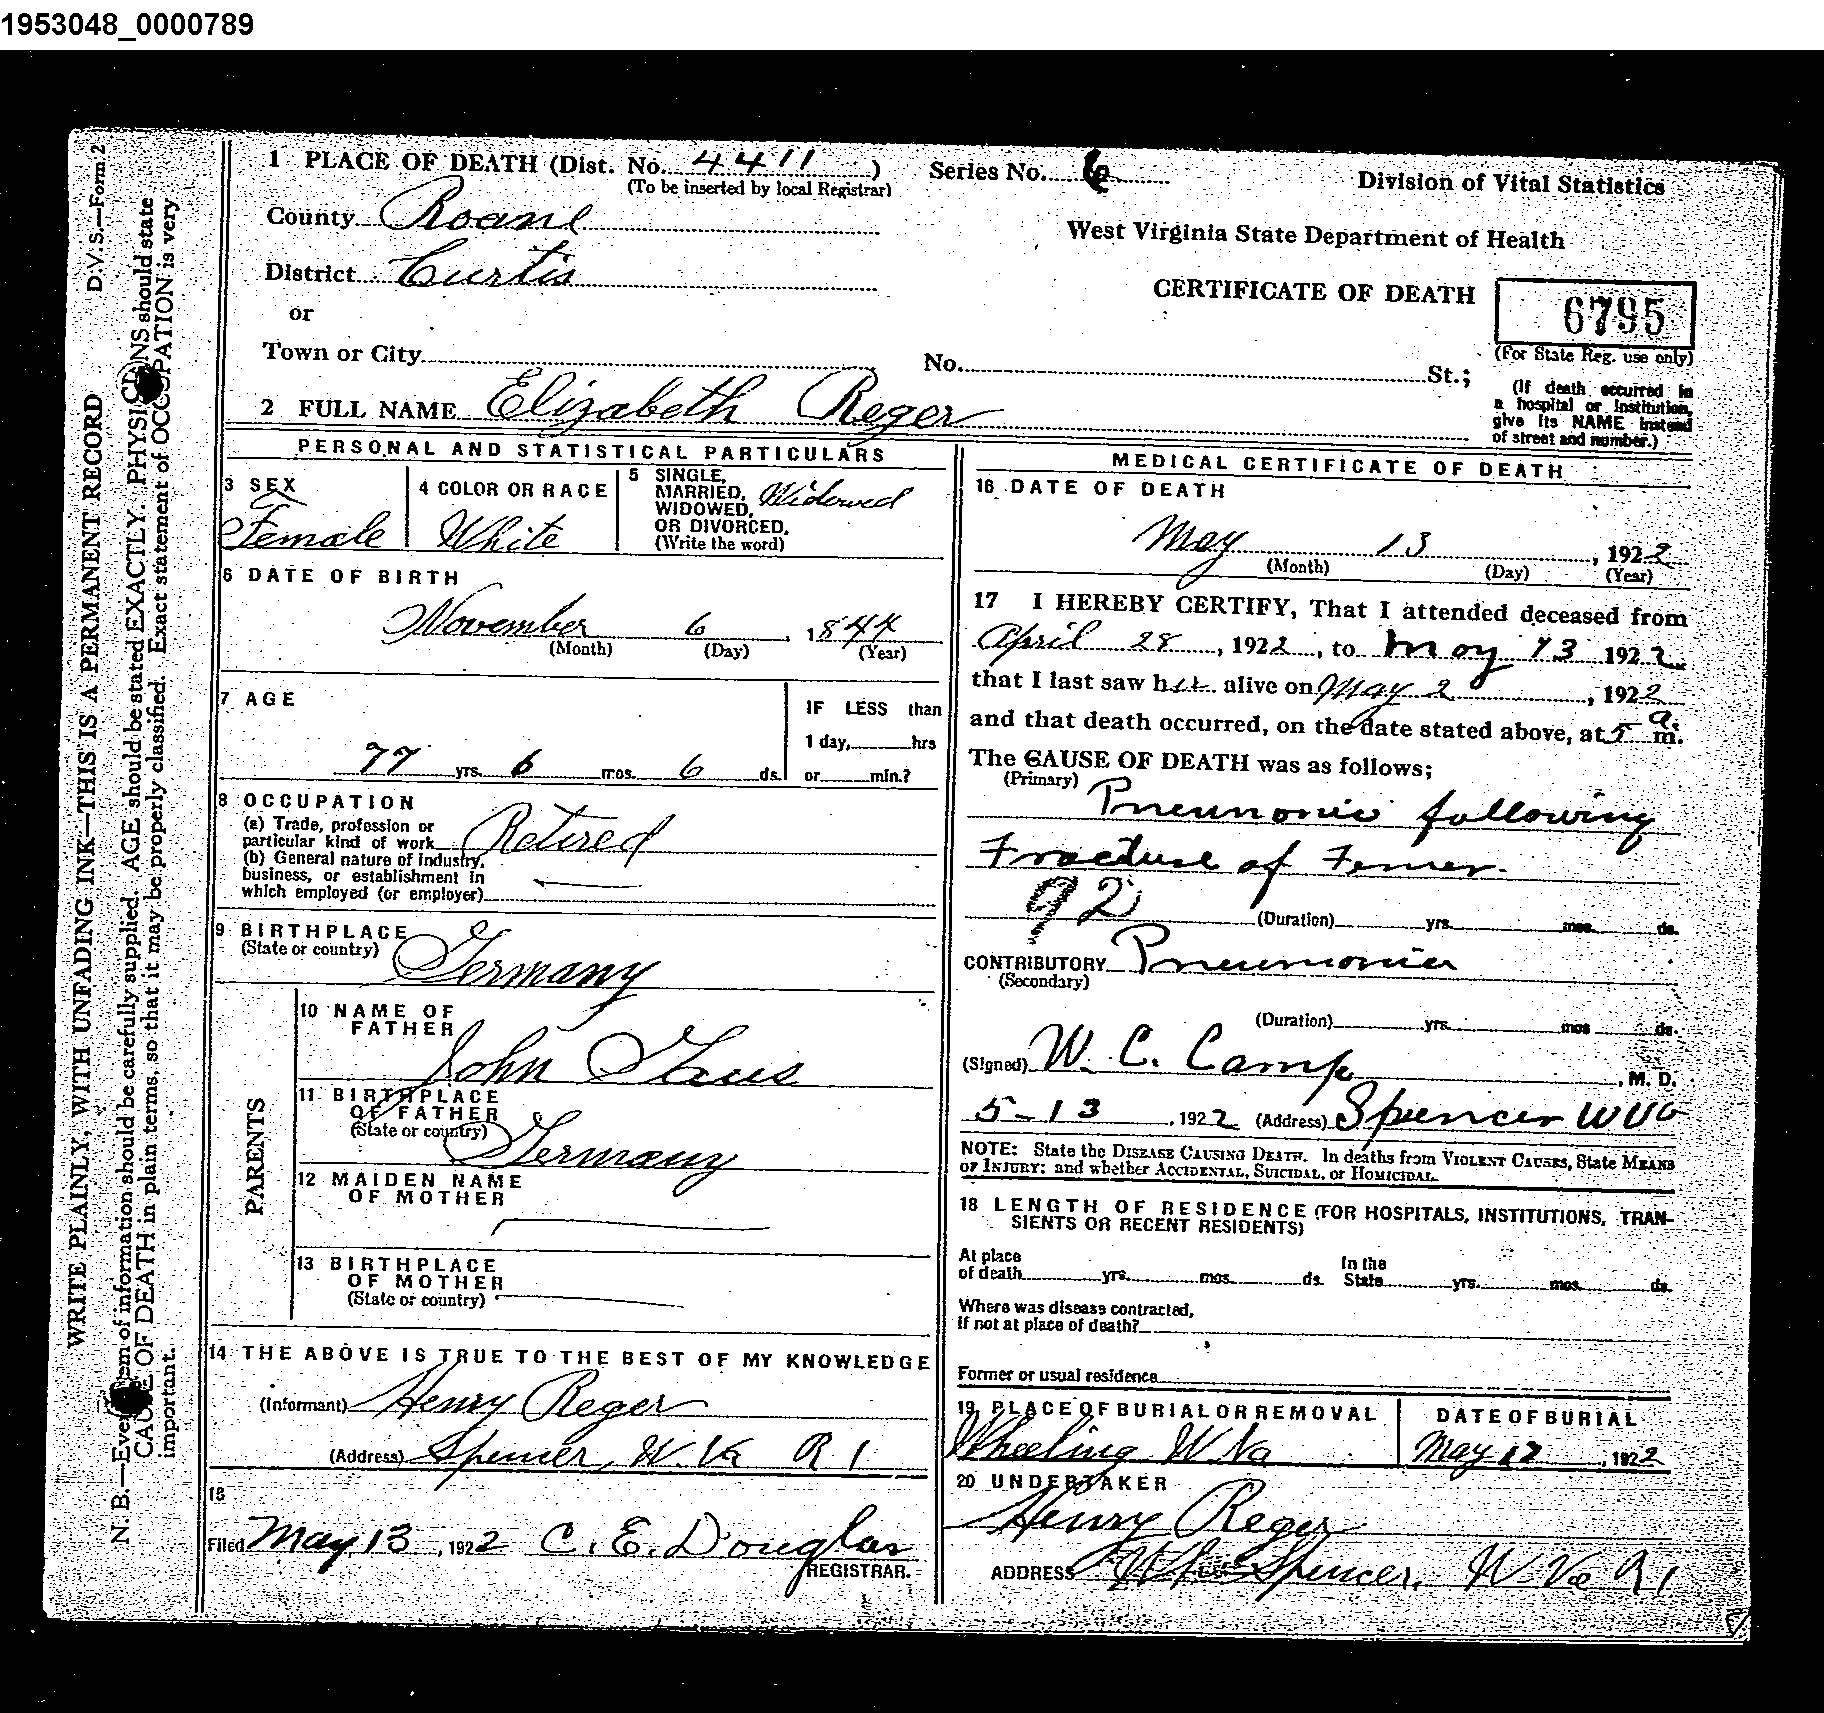 1953048_0000789
D.V.S.—Form 2
WRITE PLAINLY, WITH UNFADING INK—THIS IS A PERMANENT RECORD
N. B.—Every item of information should be carefully supplied. AGE should be stated EXACTLY. PHYSICIANS should state
CAUSE OF DEATH in plain terms, so that it may be properly classified. Exact statement of OCCUPATION is very
important.
1 PLACE OF DEATH (Dist. No. 4411 ) Series No. 6 Division of Vital Statistics
(To be inserted by local Registrar)
County Roane West Virginia State Department of Health
District Curtis
CERTIFICATE OF DEATH 6795
or
(For State Reg. use only)
Town or City No. St.;
(If death occurred in
a hospital or institution,
give its NAME instead
of street and number.)
2 FULL NAME Elizabeth Reger
PERSONAL AND STATISTICAL PARTICULARS
3 SEX
Female
4 COLOR OR RACE
White
5 SINGLE,
MARRIED,
WIDOWED,
OR DIVORCED.
(Write the word)
Widowed
6 DATE OF BIRTH
November 6, 1844
(Month) (Day) (Year)
7 AGE
77 yrs. 6 mos. 6 ds.
IF LESS than
1 day, hrs
or min.?
8 OCCUPATION
(a) Trade, profession or
particular kind of work Retired
(b) General nature of industry,
business, or establishment in
which employed (or employer)
9 BIRTHPLACE
(State or country) Germany
PARENTS
10 NAME OF
FATHER
John
11 BIRTHPLACE
OF FATHER
(State or country) Germany
12 MAIDEN NAME
OF MOTHER
13 BIRTHPLACE
OF MOTHER
(State or country)
14 THE ABOVE IS TRUE TO THE BEST OF MY KNOWLEDGE
(Informant) Henry Reger
(Address) Spencer, W. Va R 1
15
Filed May 13, 1922 C. E. Douglas
REGISTRAR.
MEDICAL CERTIFICATE OF DEATH
16 DATE OF DEATH
May 13, 1922
(Month) (Day) (Year)
17 I HEREBY CERTIFY, That I attended deceased from
April 28, 1922, to May 13 1922
that I last saw her alive on May 2, 1922
and that death occurred, on the date stated above, at 5 a. m.
The CAUSE OF DEATH was as follows;
(Primary) Pneumonia following
Fracture of Femer.
92 (Duration) yrs. mos. ds.
CONTRIBUTORY Pneumonia
(Secondary)
(Duration) yrs. mos ds.
(Signed) W. C. Camp, M. D.
5-13, 1922 (Address) Spencer W Va
NOTE: State the DISEASE CAUSING DEATH. In deaths from VIOLENT CAUSES, State MEANS
OF INJURY; and whether ACCIDENTAL, SUICIDAL, or HOMICIDAL.
18 LENGTH OF RESIDENCE (FOR HOSPITALS, INSTITUTIONS, TRAN-
SIENTS OR RECENT RESIDENTS)
At place
of death yrs. mos. ds.
In the
State yrs. mos. ds.
Where was disease contracted,
if not at place of death?
Former or usual residence
19 PLACE OF BURIAL OR REMOVAL
Wheeling W Va
DATE OF BURIAL
May, 1922
20 UNDERTAKER
Henry Reger
ADDRESS Spencer, W. Va R 1